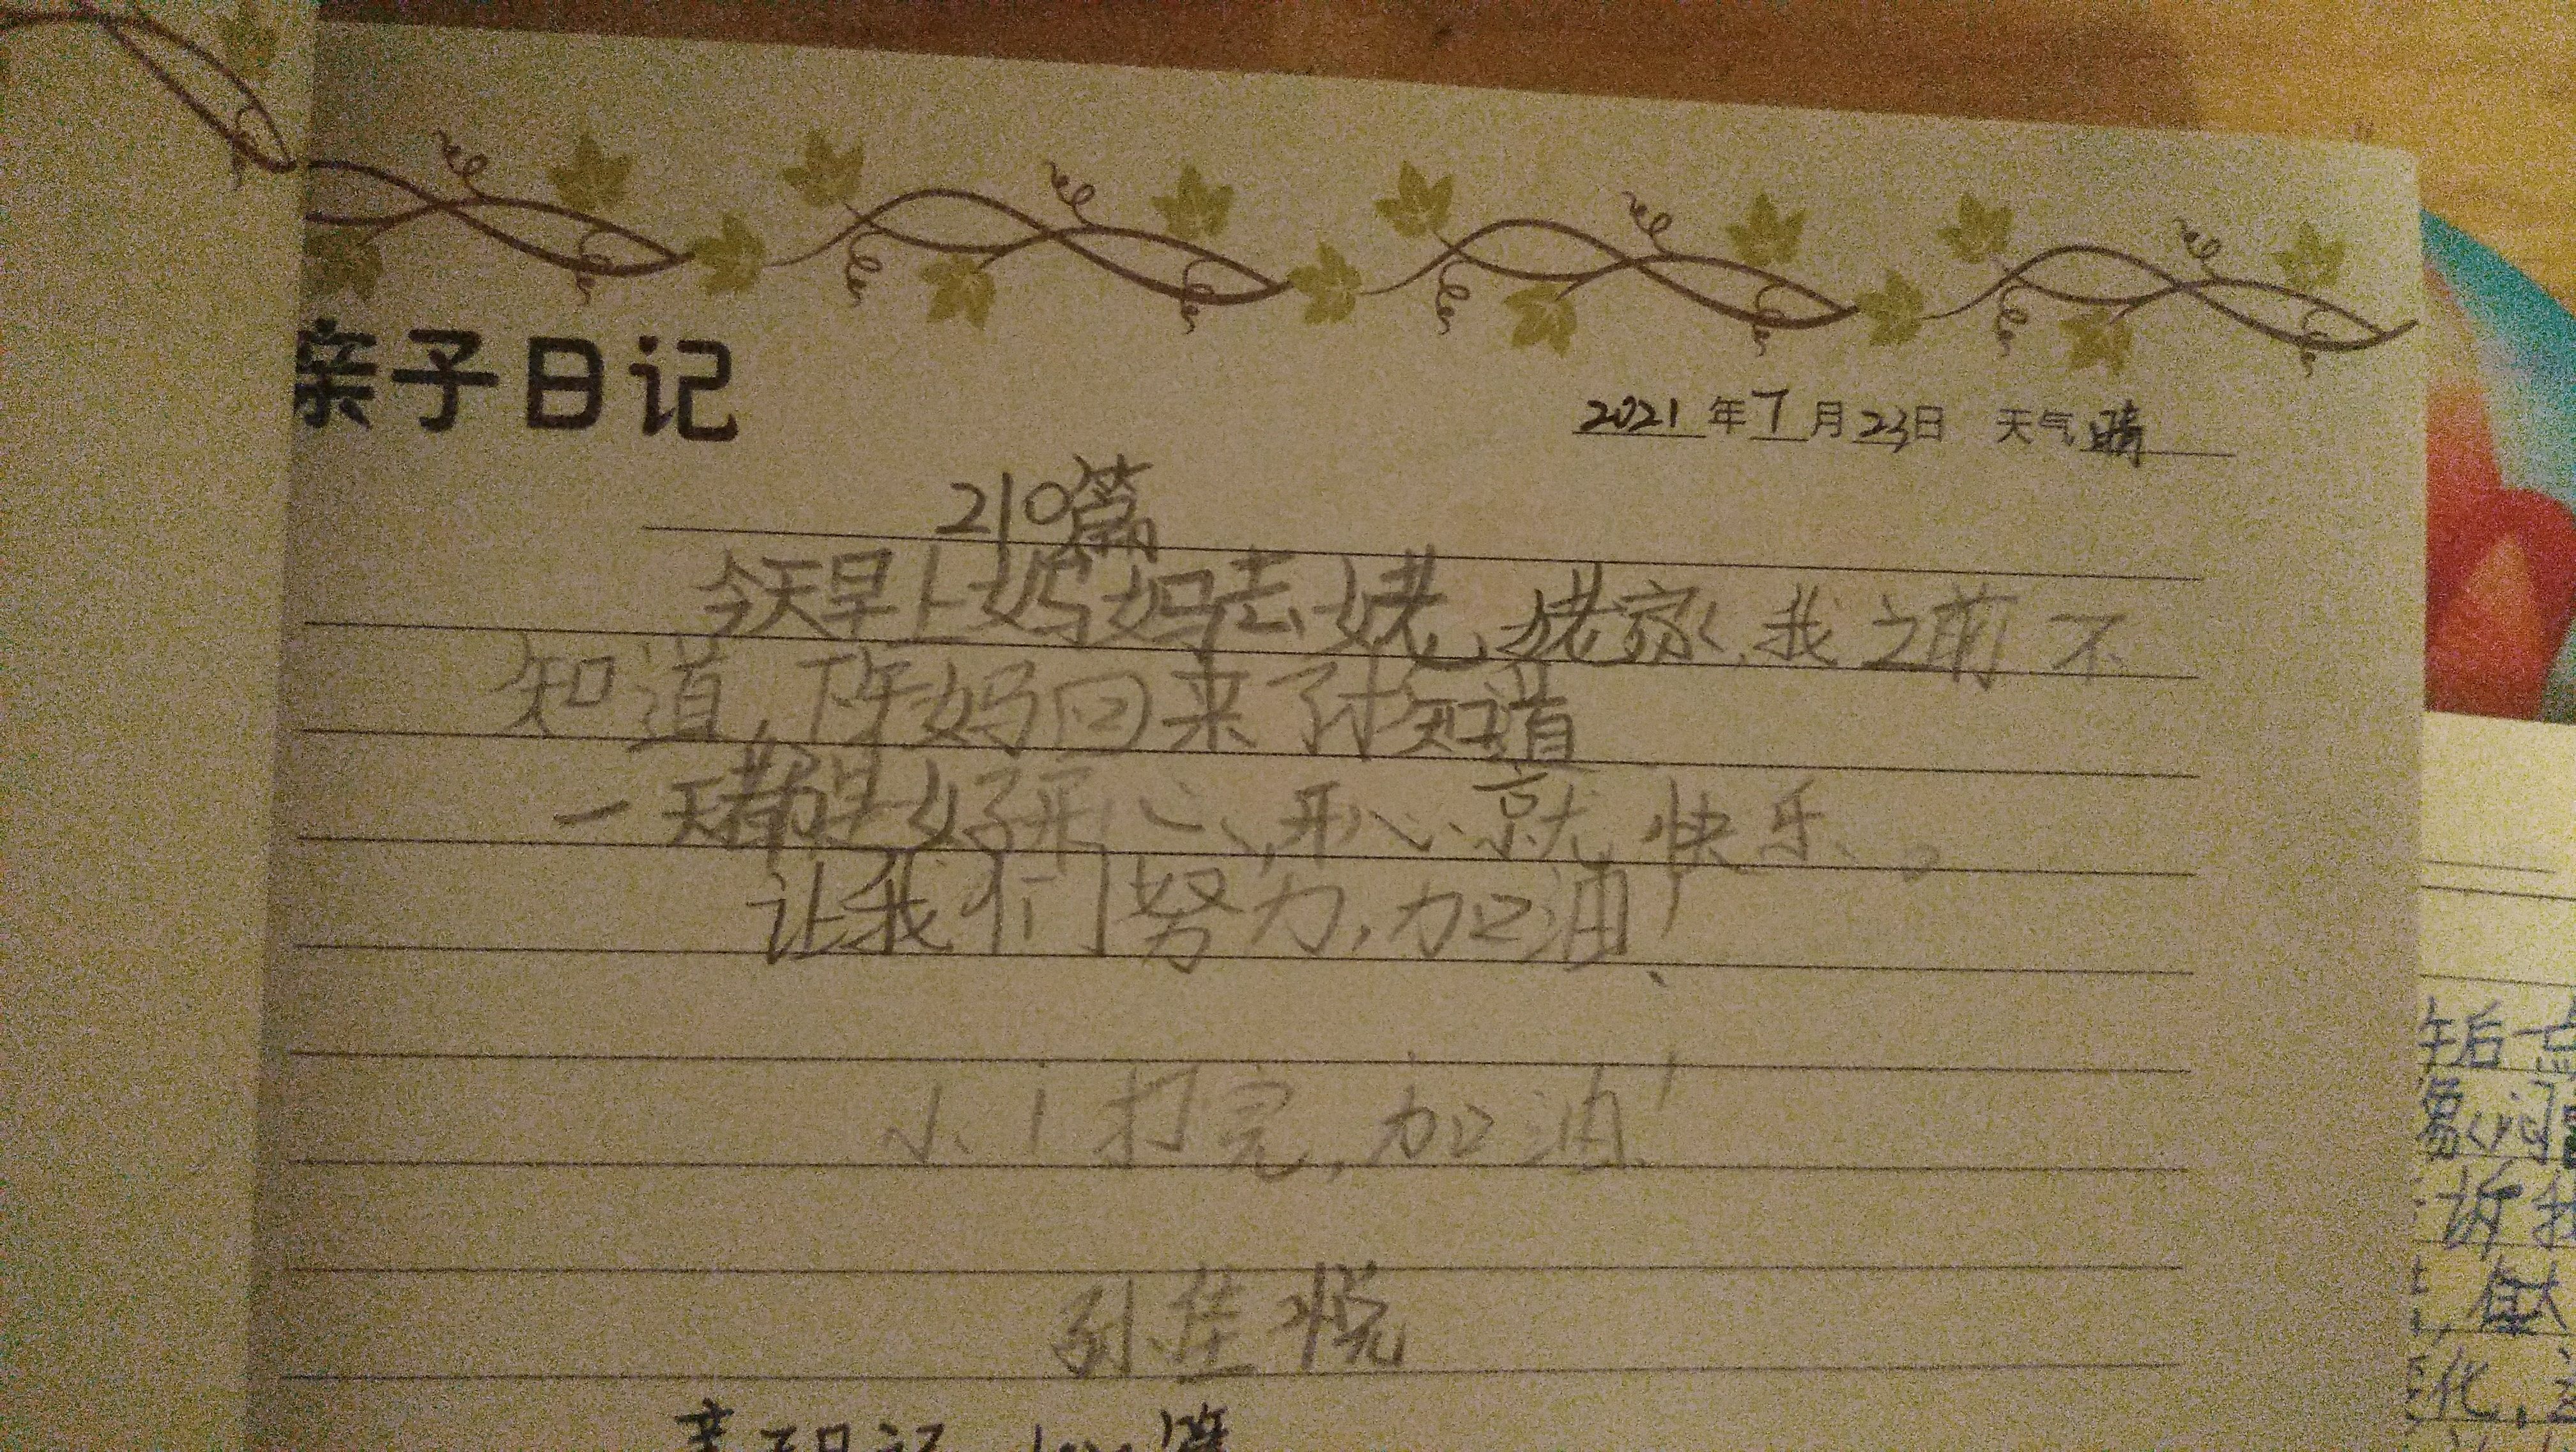 亲子日记
2021年7月23日 天气晴
210篇
今天早上妈妈去姥姥家,我之前不
知道,下午妈回来了才知道
一天都是好开心,开心就快乐。
让我们努力,加油!
打完,加油!
孙佳悦
亲子日记
午后一点
诉我
化,